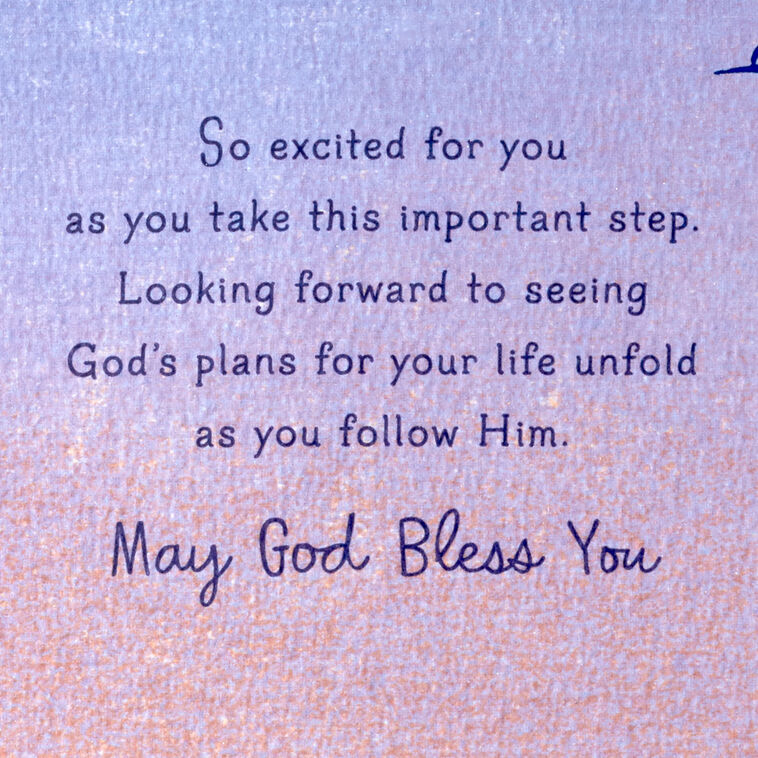 So excited for you
as you take this important step.
Looking forward to seeing
God's plans for your life unfold
as you follow Him.
May God Bless You